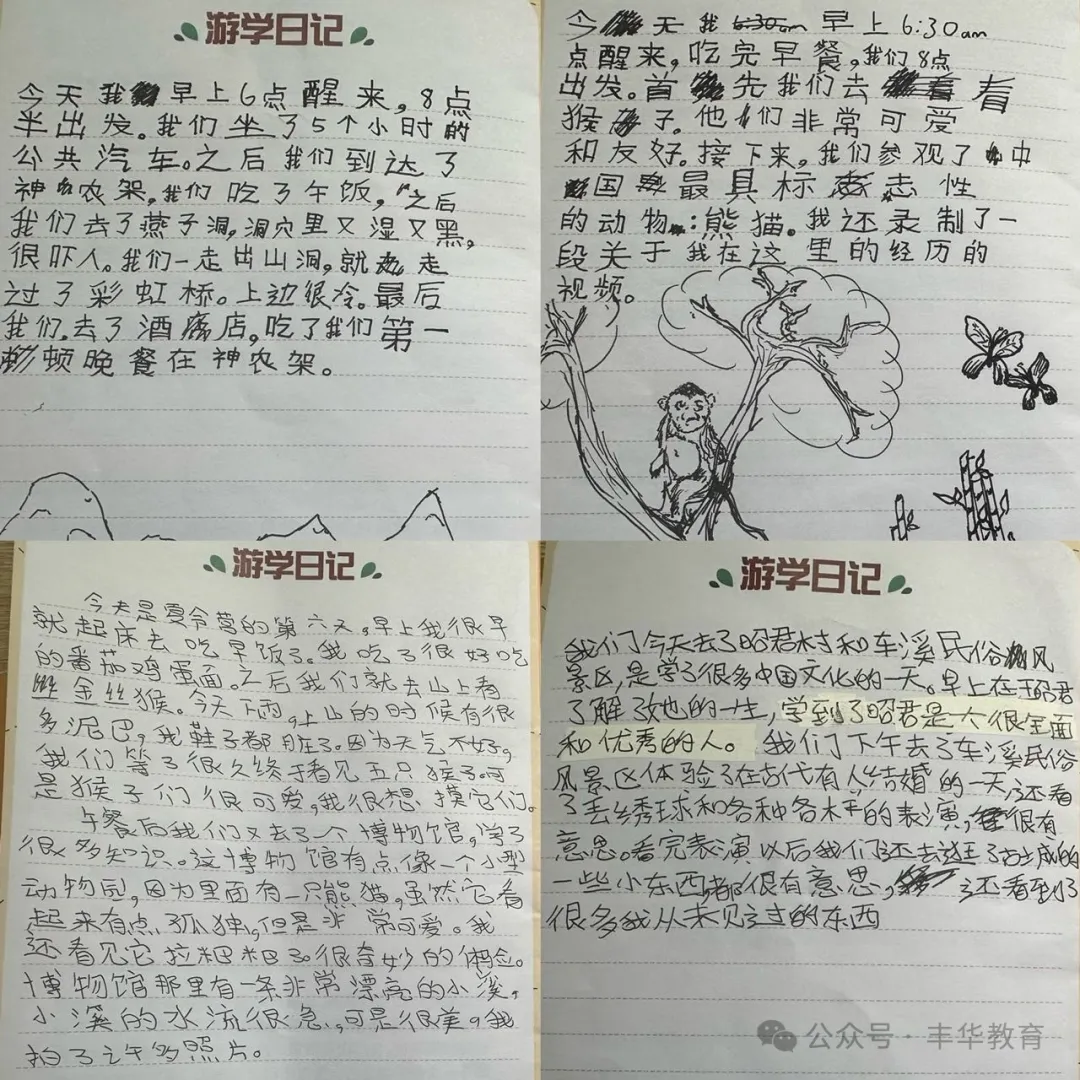 游学日记
今天我早上6点醒来,8点
半出发。我们坐了5个小时的
公共汽车。之后我们到达了
神农架,我们吃了午饭,之后
我们去了燕子洞,洞穴里又湿又黑,
很吓人。我们一走出山洞,就走
过了彩虹桥。上边很冷。最后
我们去了酒店,吃了我们第一
顿晚餐在神农架。
今天我早上6:30am
点醒来,吃完早餐,我们8点
出发。首先我们去看
猴子。他们非常可爱
和友好。接下来,我们参观了中
国最具标志性
的动物:熊猫。我还录制了一
段关于我在这里的经历的
视频。
游学日记
今天是夏令营的第六天,早上我很早
就起床去吃早饭了。我吃了很好吃
的番茄鸡蛋面。之后我们就去山上看
金丝猴。今天下雨,上山的时候有很
多泥巴,我鞋子都脏了。因为天气不好,
我们等了很久终于看见五只猴子。可
是猴子们很可爱,我很想摸它们。
午餐后我们又去了一个博物馆,学了
很多知识。这博物馆有点像一个小型
动物园,因为里面有一只熊猫,虽然它看
起来有点孤独,但是非常可爱。我
还看见它拉粑粑了。很奇妙的体验。
博物馆那里有一条非常漂亮的小溪,
小溪的水流很急,可是很美。我
拍了许多照片。
游学日记
我们今天去了昭君村和车溪民俗风
景区,是学了很多中国文化的一天。早上在王昭君
了解了她的一生,学到了昭君是个很全面
和优秀的人。我们下午去了车溪民俗
风景区体验了在古代有人结婚的一天,还看
了丢绣球和各种各样的表演,很有
意思。看完表演以后我们还去逛了古城的
一些小东西,都很有意思,还看到了
很多我从未见过的东西
公众号·丰华教育